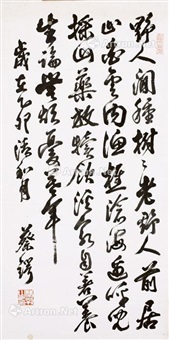 野人閒種樹〻老野人前居
止白雲內漁樵滄海邊呼兒
採山藥放犢飲溪泉自著養
生論無煩憂暮年
歲在乙卯清和月
蔡鍔